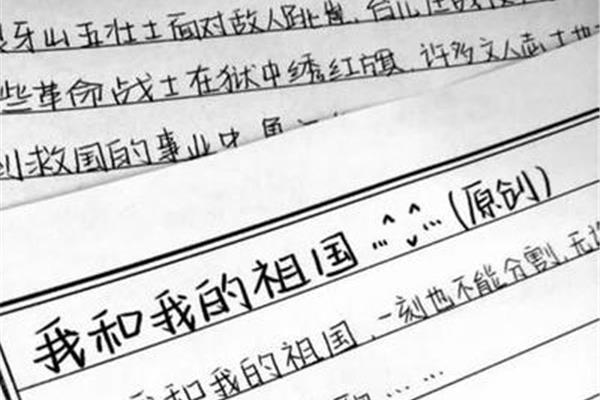 牙山五壮士面对敌人跳崖，台儿庄战
些革命战士在狱中绣红旗，许多文人志士
到救国的事业中
我和我的祖国…^ˇ^…(原创)
我和我的祖国，一刻也不能分割，无论
歌……